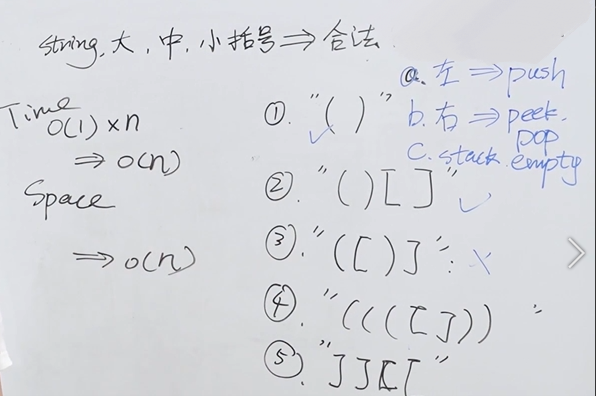 string. 大, 中, 小括号 ⇒ 合法.
Time
O(1) × n
⇒ O(n)
Space
⇒ O(n)
①. "( )" ✓
②. "( ) [ ]" ✓
③. "( [ ) ]": X
④. "( ( ( [ ] ) ) "
⑤. "] ] [ ["
a. 左 ⇒ push
b. 右 ⇒ peek.
pop
c. stack empty